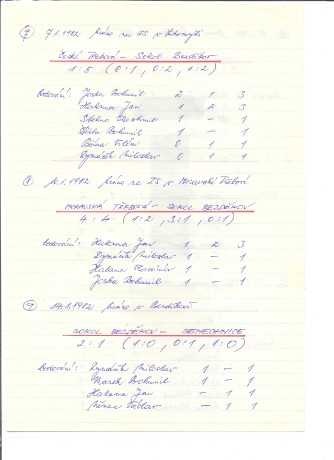 7 7.1.1982 hráno na ZS v
Česká Třebová - Sokol Bezděkov
1:5 (0:1, 0:2, 1:2)
bodování: Joska Bohumil 2 1 3
Halama Jan 1 2 3
1 - 1
Bohumil 1 - 1
0 1 1
Dymáček Miloslav 0 1 1
8 10.1.1982 hráno na ZS v Moravské Třebové
MORAVSKÁ TŘEBOVÁ - SOKOL BEZDĚKOV
4:4 (1:2, 3:1, 0:1)
bodování: Halama Jan 1 2 3
Dymáček Miloslav 1 - 1
1 - 1
Joska Bohumil 1 - 1
9 14.1.1982 hráno v Bezděkově
SOKOL BEZDĚKOV - SEMECHNICE
2:1 (1:0, 0:1, 1:0)
bodování: Dymáček Miloslav 1 - 1
Marek Bohumil 1 - 1
Halama Jan - 1 1
Václav - 1 1